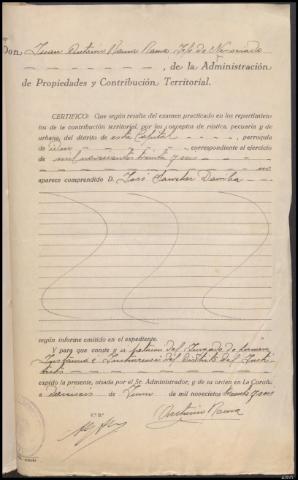 Don Juan Antonio Rama Rama Jefe de Negociado
de la Administración
de Propiedades y Contribución Territorial.
CERTIFICO: Que según resulta del examen practicado en los repartimientos
de la contribución territorial, por los conceptos de rústica, pecuaria y de
urbana, del distrito de esta Capital, parroquia
de idem, correspondiente al ejercicio
de mil novecientos treinta y uno
no
aparece comprendido D. José Sánchez
según informe emitido en el expediente.
Y para que conste y a petición del Juzgado de primera
Instancia e Instrucción del Distrito del Instituto
expido la presente, visada por el Sr. Administrador, y de su orden en La Coruña
a de Junio de mil novecientos treinta y uno
V.º B.º
Antonio Rama